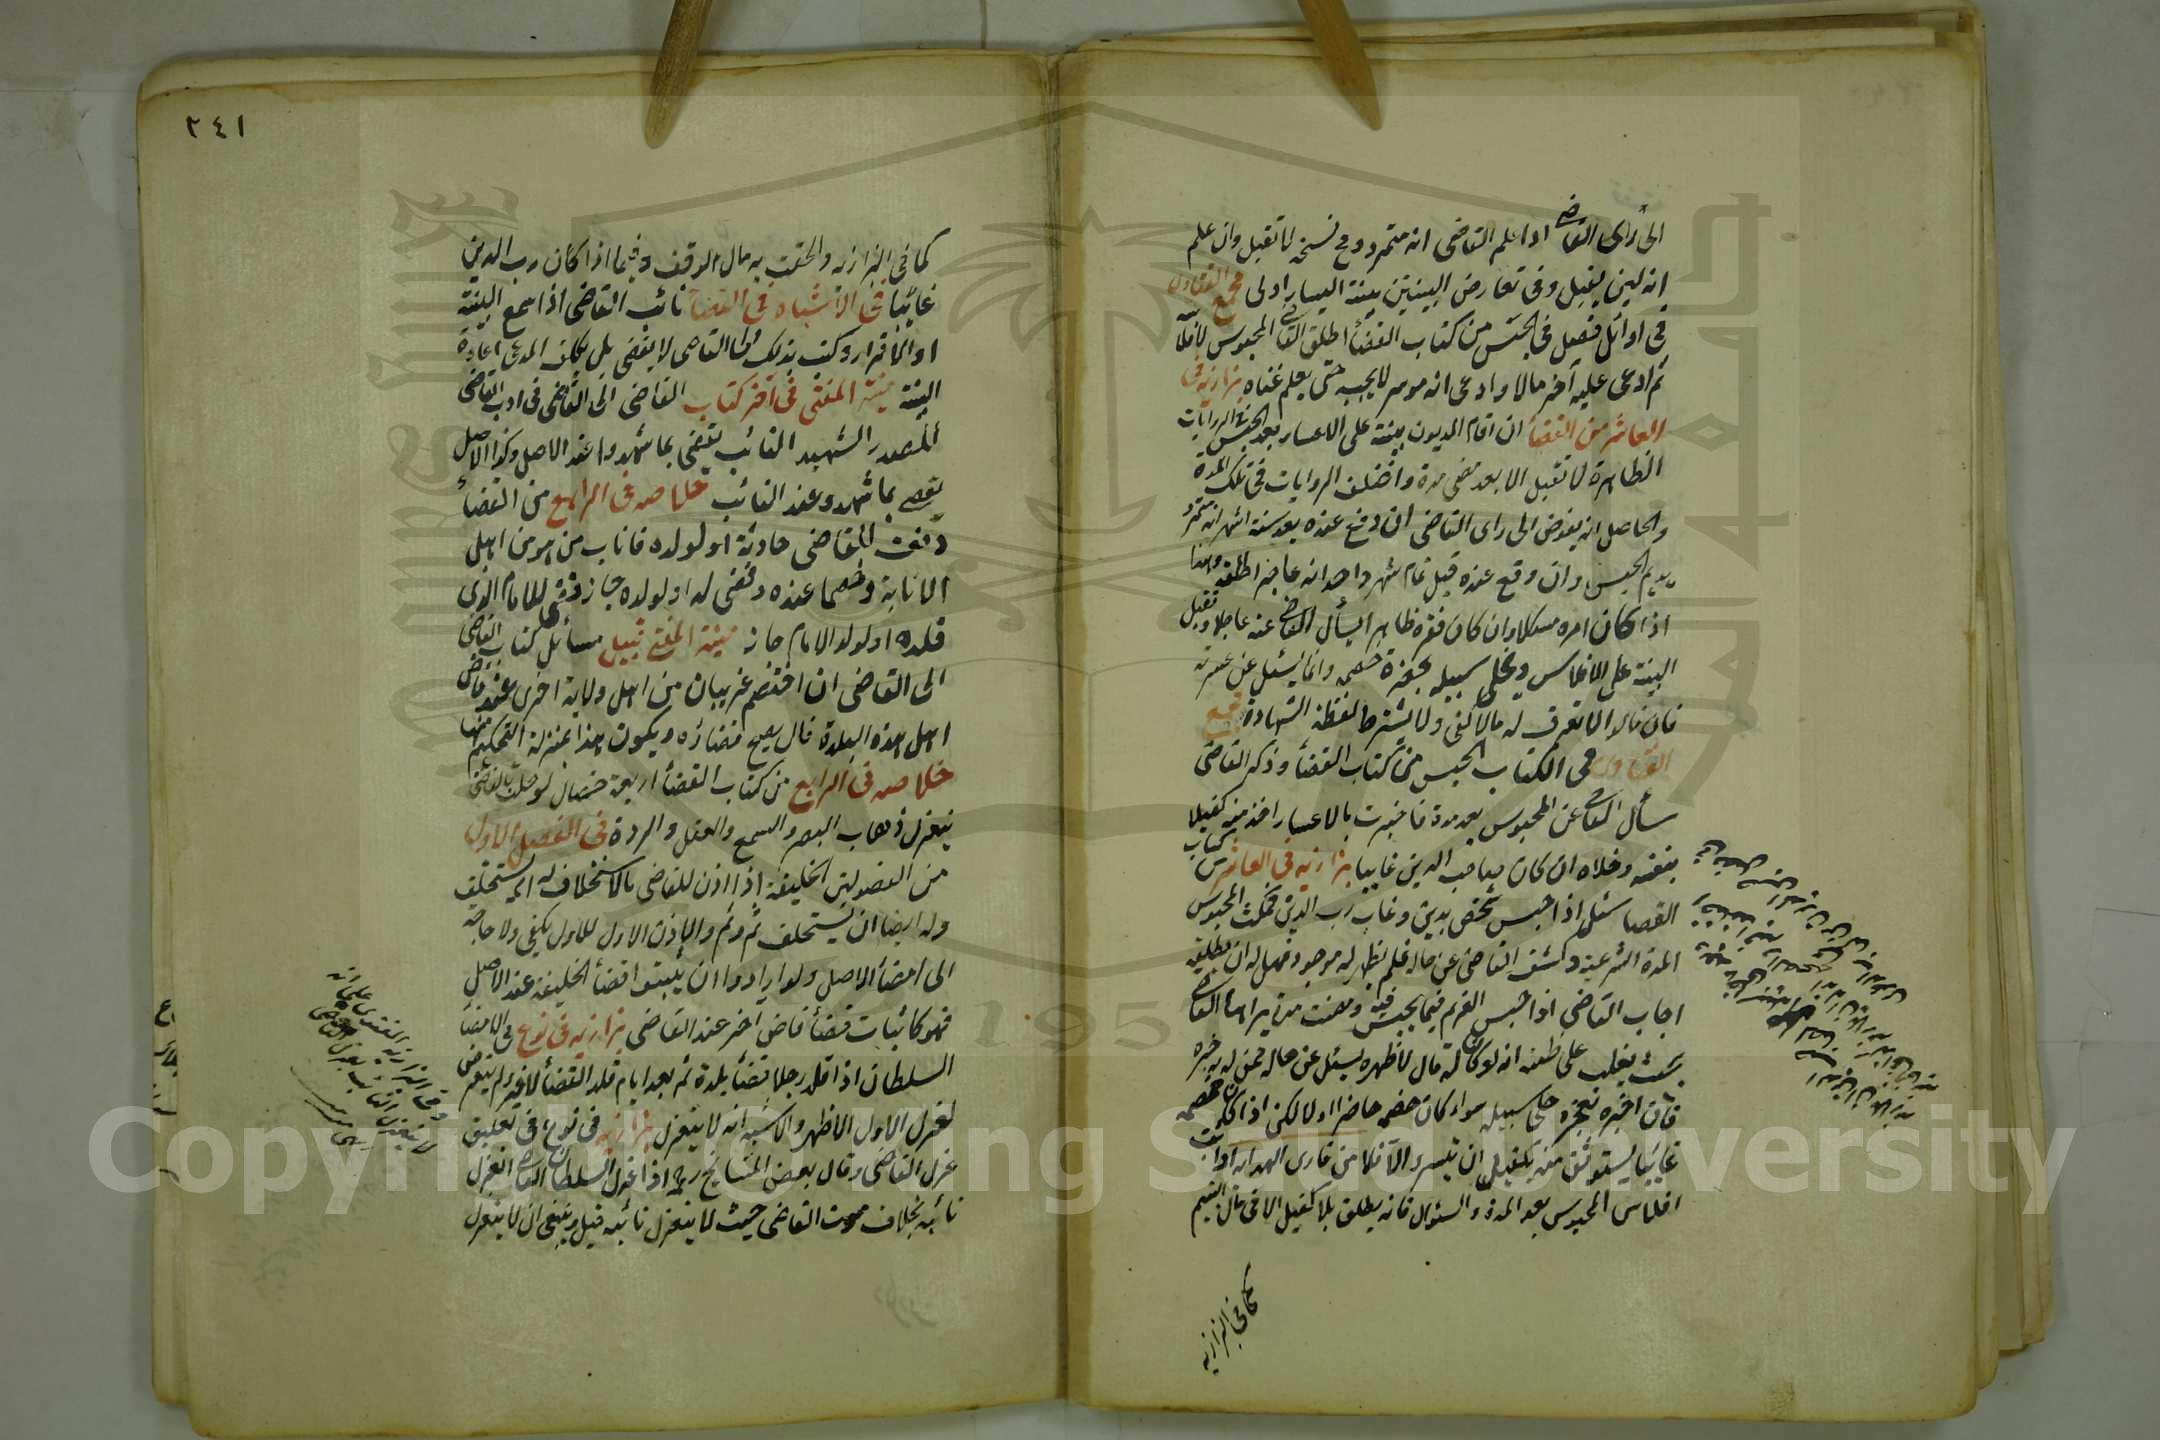 الى رأى القاضى اذا علم القاضى انه متمرد وفى نسخه لا تقبل وان علم
انه لين يقبل وفى تعارض البينتين بينة اليسار اولى مجمع الفتاوى
فى اوائل فصل فى الحبس من كتاب القضأ اطلق القاضى المحبوس لافلا
ثم ادعى عليه آخر مالا وادعى انه موسر لا يحبسه حتى يعلم غناه بزازيه فى
العاشر من القضأ ان اقام المديون بينة على الاعسار بعد الحبس فى الروايات
الظاهرة لا تقبل الا بعد مضى مدة واختلف الروايات فى تلك المدة
والحاصل انه يفوض الى راى القاضى ان وقع عنده بعد ستة اشهر انه متمرد
يديم الحبس وان وقع عنده قبل تمام شهر واحد انه عاجز اطلقه وهذا
اذا كان امره مشكلا وان كان فقره ظاهرا يسأل القاضى عنه عاجلا وتقبل
البينة على الافلاس ويخلى سبيله بحضرة خصمه وانما يسئل عن عسرته
فان قالوا لا نعرف له مالا كفى ولا يشترط لفظة الشهادة مجمع
الفتاوى فى الكتاب الحبس من كتاب القضأ وذكر القاضى
سأل القاضى عن المحبوس بعد مدة فاخبرت بالاعسار اخذ منه كفيلا
بنفسه وخلاه ان كان صاحب الدين غايبا بزازيه فى العاشر من كتاب
القضا سئل اذا حبس شخص بدين وغاب رب الدين فمكث المحبوس
المدة الشرعية وكشف القاضى عن حاله فلم يظهر له موجود فهل له ان يطلقه
اجاب القاضى اذا حبس الغريم فيما يحبس فيه ومضت مدة يراها القاضى
بحيث يغلب على ظنه انه لو كان له مال لاظهره يسئل عن حاله ممن له به خبره
فان اخبره بعجزه خلى سبيله سواء كان خصمه حاضرا اولا لكن اذا كان خصمه
غايبا يستوثق منه بكفيل ان تيسر والا فلا من قارى الهدايه اذا ثبت
افلاس المحبوس بعد المدة والسئوال فانه يطلق بلا كفيل الا فى مال اليتيم
كما فى البزازيه
٢٤١
كما فى البزازيه والحقت به مال الوقف وفيما اذا كان رب الدين
غائبا فى الاشباه فى القضأ نائب القاضى اذا سمع البينة
او الاقرار وكتب بذلك الى القاضى لا يقضى بل يكلف المدعى اعادة
البينة منية المفتى فى آخر كتاب القاضى الى القاضى فى ادب القاضى
للصدر الشهيد النائب يقضى بما شهدوا عند الاصل وكذا الاصل
يقضى بما شهدوا عند النائب خلاصه فى الرابع من القضأ
وقعت للقاضى حادثة او لولده فاناب من هو من اهل
الانابة وخصما عنده وقضى له او لولده جاز وقضى للامام الذى
قلده او لولد الامام جاز منية المفتى قبيل مسائل كتاب القاضى
الى القاضى ان اختصم غريبان من اهل ولاية اخرى عند قاض
اهل هذه البلدة قال يصح قضاؤه ويكون هذا بمنزلة التحكيم منهما
خلاصه فى الرابع من كتاب القضأ اربعة خصال لو حلت بالقاضى
ينعزل ذهاب البصر والسمع والعقل والردة فى الفصل الاول
من الفصولين الخليفة اذا اذن للقاضى بالاستخلاف له ان يستخلف
وله ايضا ان يستخلف ثم وثم والاذن الاول للاول يكفى ولا حاجة
الى امضأ الاصل ولو ارادوا ان يثبتوا قضأ الخليفة عند الاصل
فهو كاثبات قضأ قاض اخر عند القاضى بزازيه فى نوع فى الامضأ
السلطان اذا قلد رجلا قضأ بلدة ثم بعد ايام قلد القضأ لاخر ولم يتعرض
لعزل الاول الاظهر والاشبه انه لا ينعزل بزازيه فى نوع فى تعليق
عزل القاضى وقال بعض المشايخ رح اذا عزل السلطان القاضى انعزل
نائبه بخلاف موت القاضى حيث لا ينعزل نائبه قيل وينبغى ان لا ينعزل
وفى البزازيه الفتوى على انه
لا ينعزل النائب بعزل القاضى
Copyright © King Saud University
1957